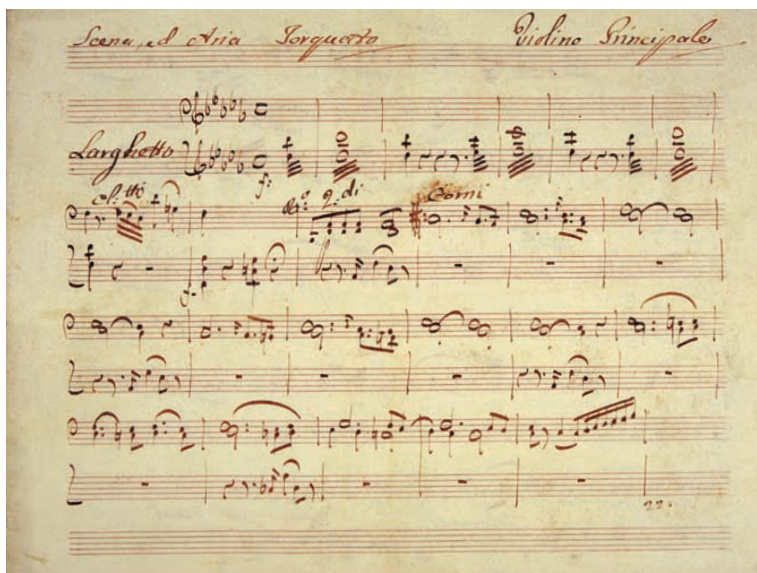 Scena, ed Aria Torquato Violino Principale
Larghetto
f:
Cl:tto 2:di Corni
22.